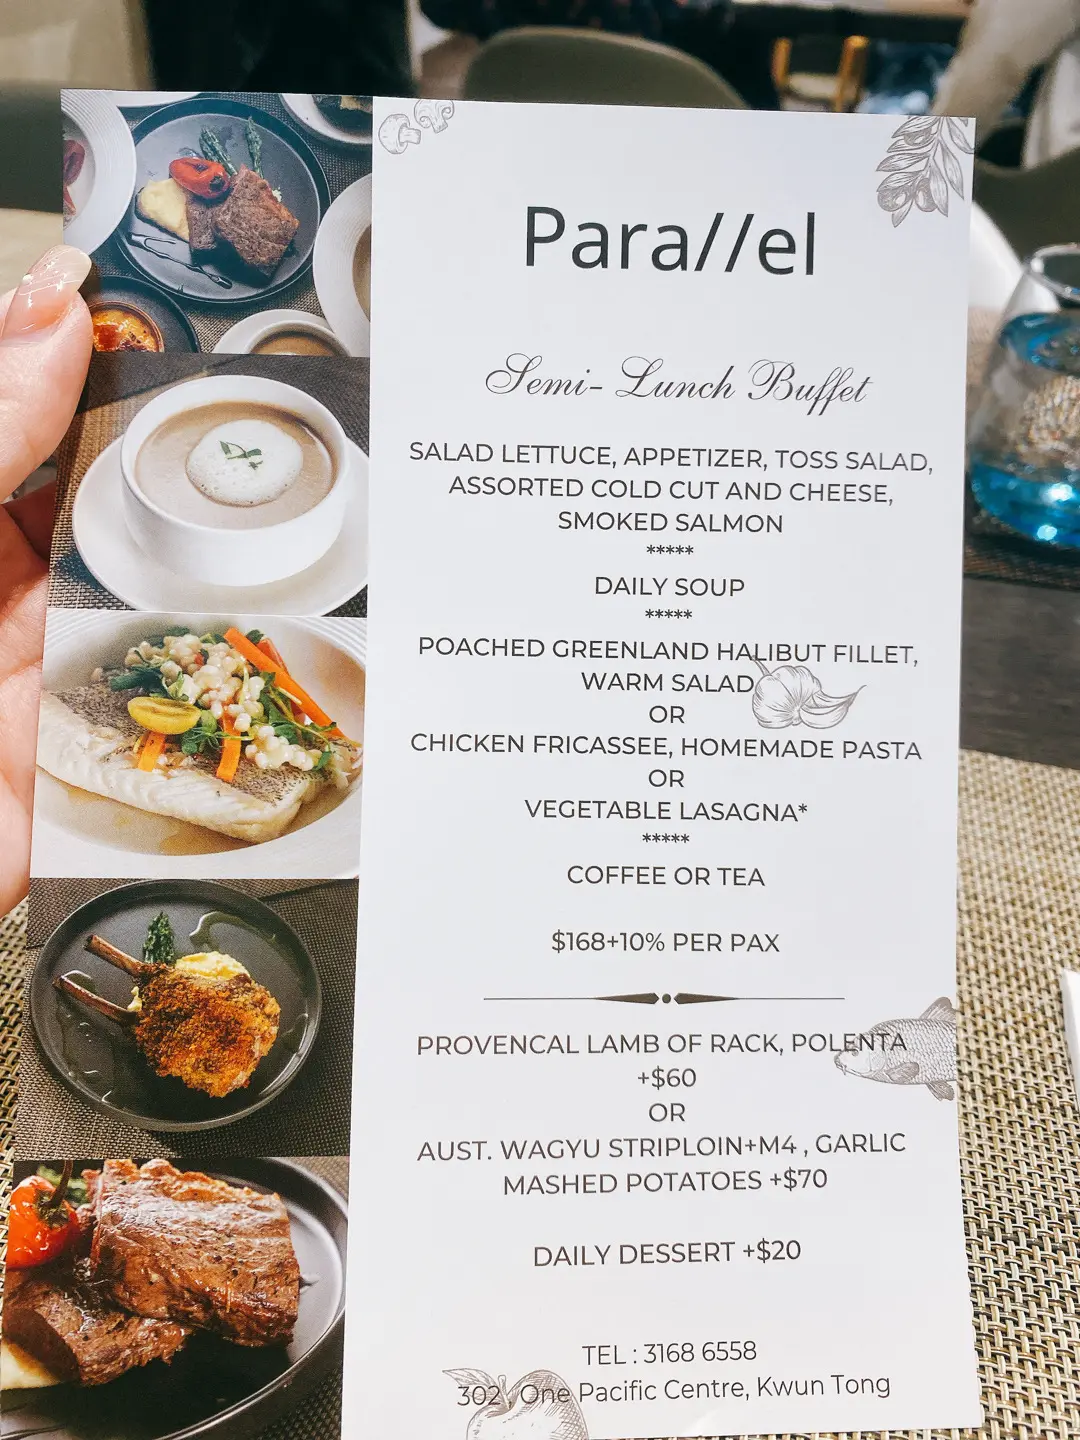 Para//el
Semi- Lunch Buffet
SALAD LETTUCE, APPETIZER, TOSS SALAD,
ASSORTED COLD CUT AND CHEESE,
SMOKED SALMON
*****
DAILY SOUP
*****
POACHED GREENLAND HALIBUT FILLET,
WARM SALAD
OR
CHICKEN FRICASSEE, HOMEMADE PASTA
OR
VEGETABLE LASAGNA*
*****
COFFEE OR TEA
$168+10% PER PAX
PROVENCAL LAMB OF RACK, POLENTA
+$60
OR
AUST. WAGYU STRIPLOIN+M4 , GARLIC
MASHED POTATOES +$70
DAILY DESSERT +$20
TEL : 3168 6558
302, One Pacific Centre, Kwun Tong